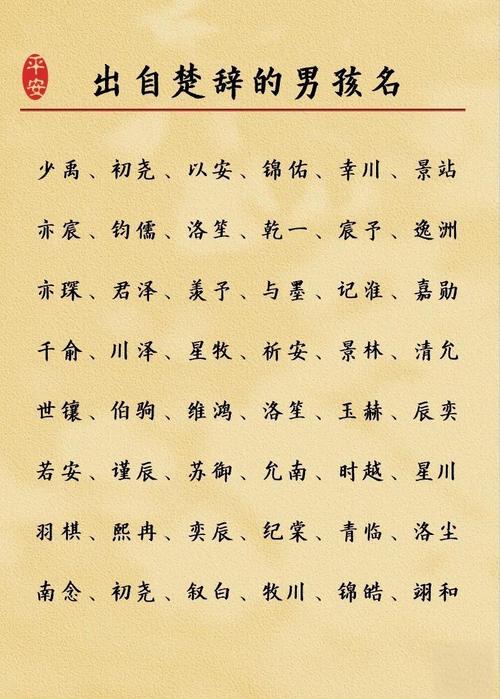 平安
出自楚辞的男孩名
少禹、初尧、以安、锦佑、幸川、景站
亦宸、钧儒、洛笙、乾一、宸予、逸洲
亦琛、君泽、羡予、与墨、记淮、嘉勋
千俞、川泽、星牧、祈安、景林、清允
世镶、伯驹、维鸿、洛笙、玉赫、辰奕
若安、谨辰、苏御、允南、时越、星川
羽棋、熙冉、奕辰、纪棠、青临、洛尘
南念、初尧、叙白、牧川、锦皓、翊和